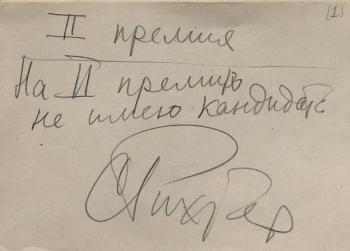 [1]
II премия
На II премию
не имею кандидата
СРихтер